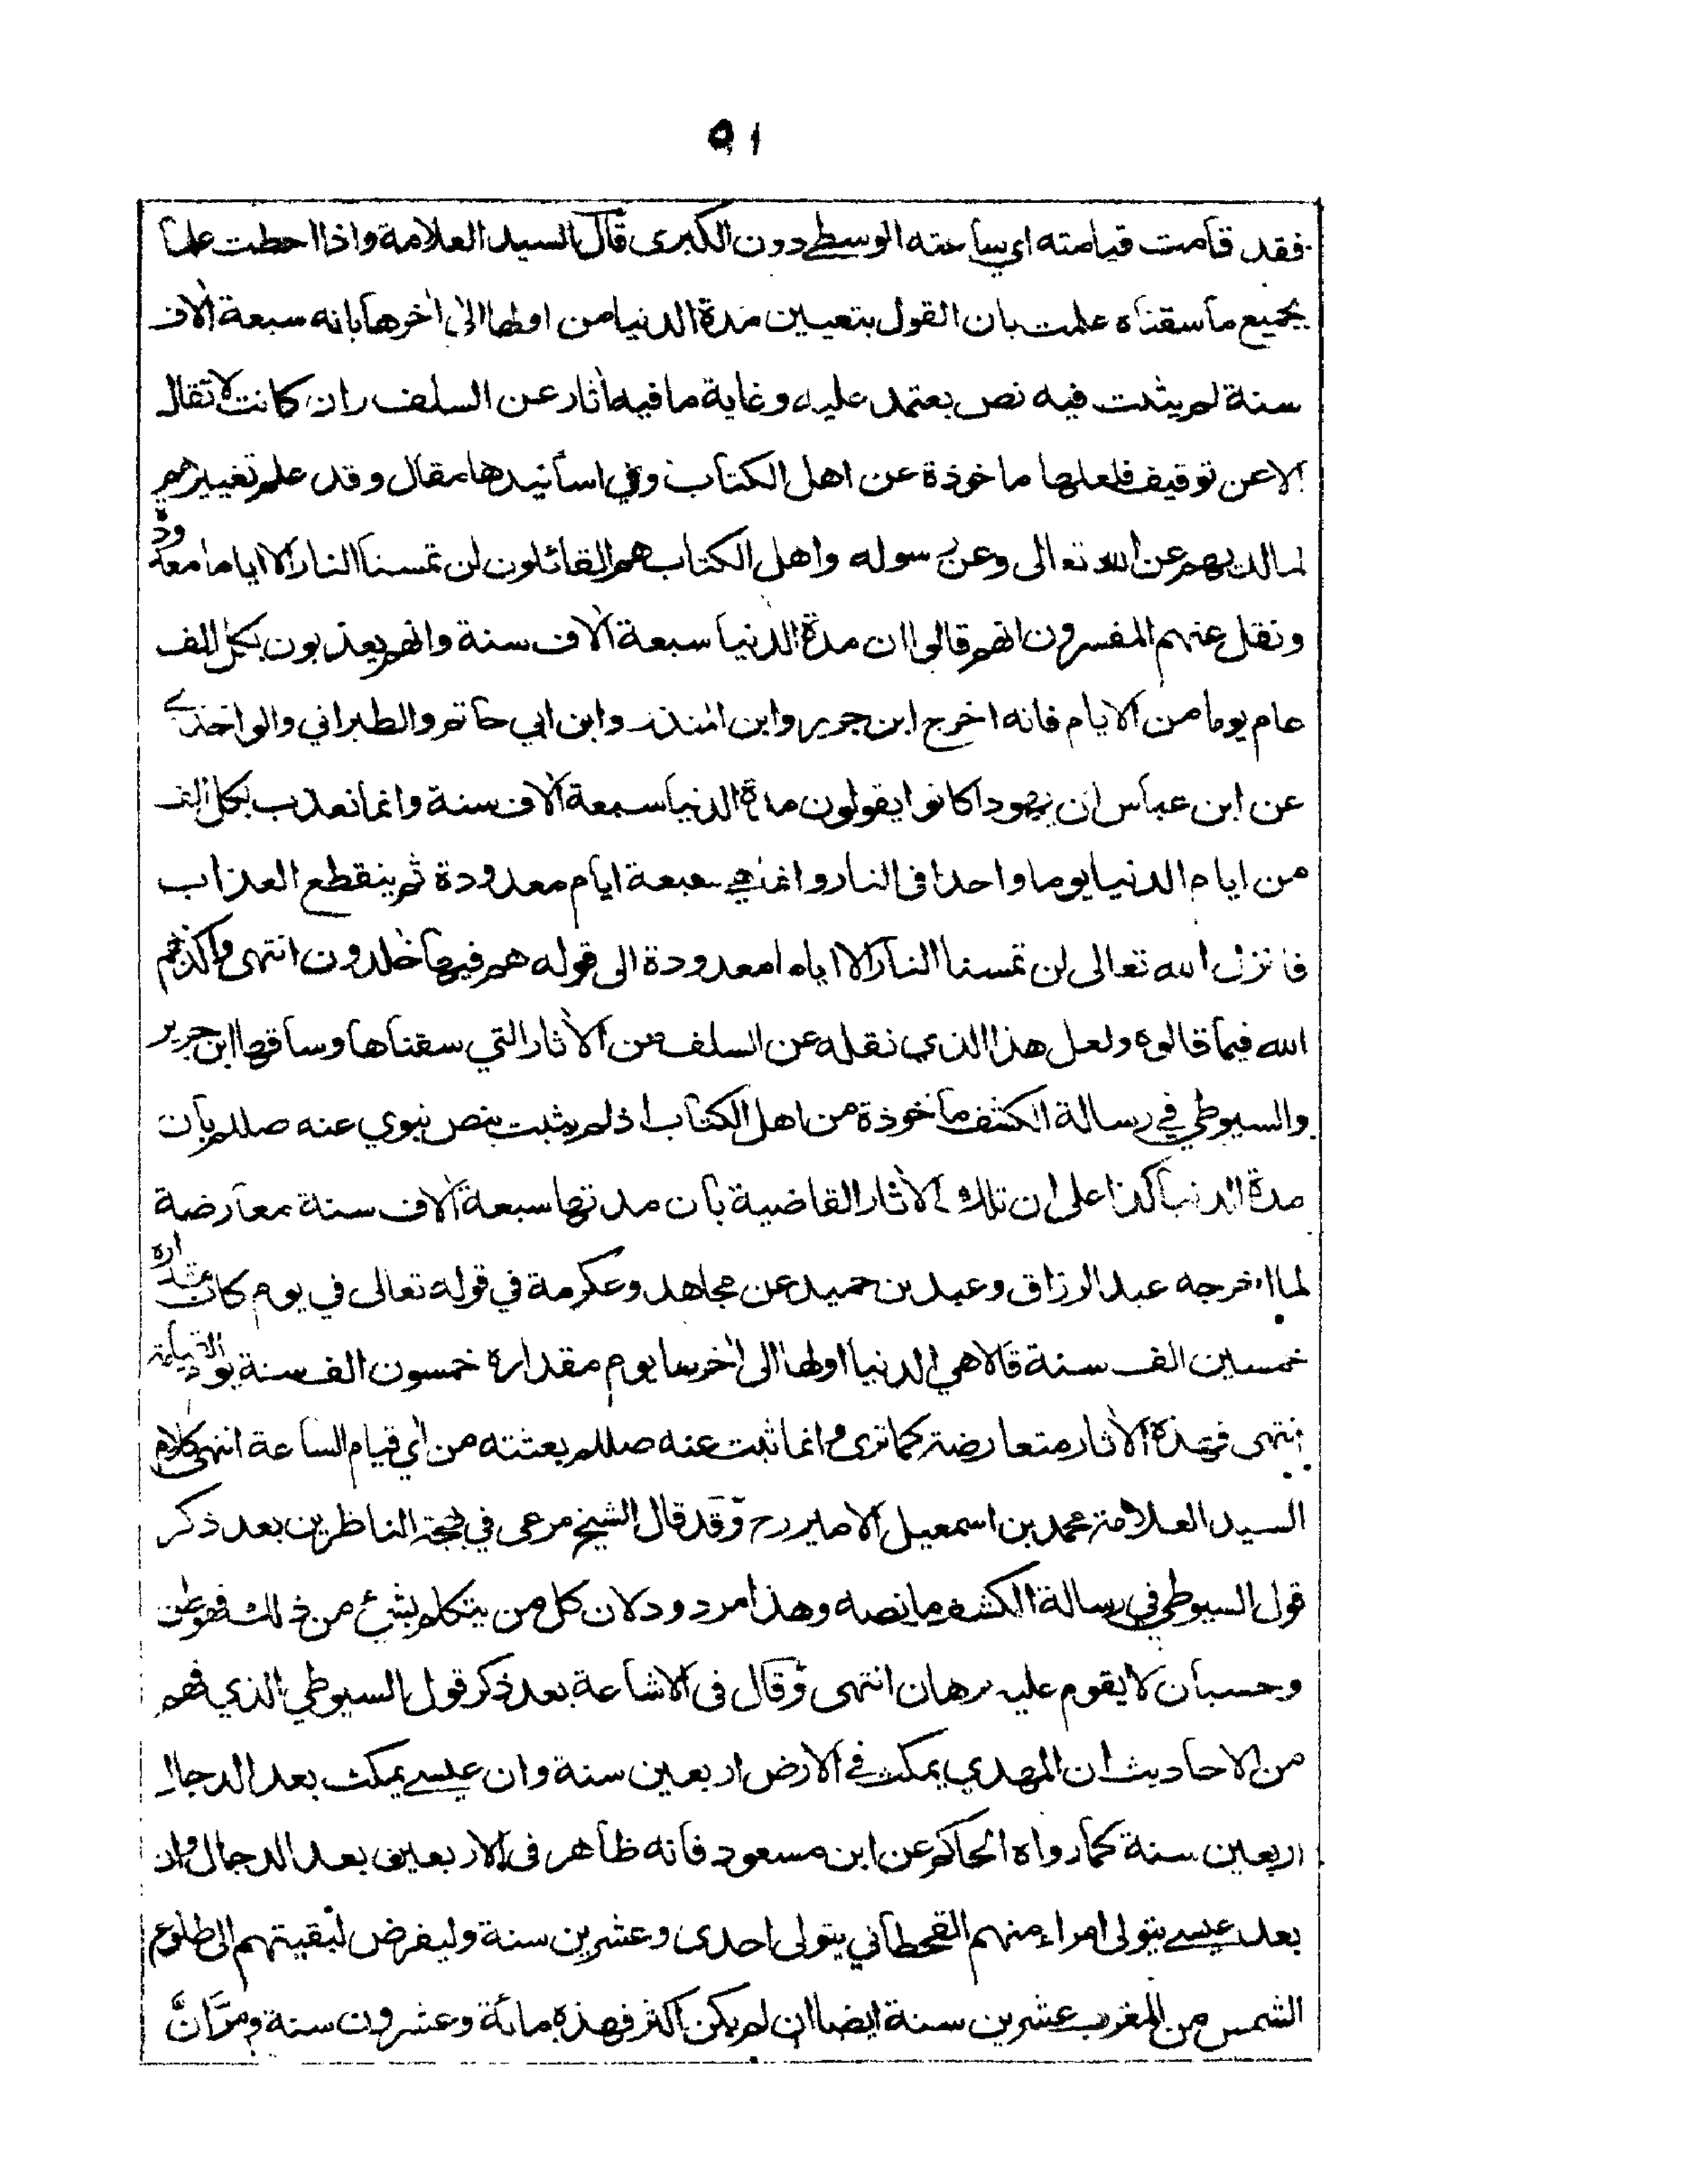 ٥١
فقد قامت قيامته اي ساعته الوسطے دون الكبرى قال السيد العلامة واذا احطت علما
بجميع ما سقناه علمت بان القول بتعيين مدة الدنيا من اولها الى اٰخرها بانه سبعة اٰلاف
سنة لم يثبت فيه نص يعتمد عليه وغاية ما فيه اٰثار عن السلف وان كانت لا تقال
الا عن توقيف فلعلها ماخوذة عن اهل الكتاب وفي اسانيدها مقال وقد علم تغييرهم
لما لديهم عن الله تعالى وعن رسوله واهل الكتاب هم القائلون لن تمسنا النار الا اياما معدودة
ونقل عنهم المفسرون انهم قالوا ان مدة الدنيا سبعة اٰلاف سنة وانهم يعذبون بكل الف
عام يوما من الايام فانه اخرج ابن جرير وابن المنذر وابن ابي حاتم والطبراني والواحدي
عن ابن عباس ان يهودا كانوا يقولون مدة الدنيا سبعة اٰلاف سنة وانما نعذب بكل الف
من ايام الدنيا يوما واحدا فى النار وانما هي سبعة ايام معدودة ثم ينقطع العذاب
فانزل الله تعالى لن تمسنا النار الا اياما معدودة الى قوله هم فيها خٰلدون انتهى واكذبهم
الله فيما قالوه ولعل هذا الذي نقله عن السلف من الاٰثار التي سقناها وساقها ابن جرير
والسيوطي في رسالة الكشف ماخوذة من اهل الكتاب اذ لم يثبت بنص نبوي عنه صللم بان
مدة الدنيا كذا على ان تلك الاٰثار القاضية بان مدتها سبعة اٰلاف سنة معارضة
لما اخرجه عبد الرزاق وعبد بن حميد عن مجاهد وعكرمة في قوله تعالى في يوم كان مقداره
خمسين الف سنة قالا هي الدنيا اولها الى اٰخرها يوم مقداره خمسون الف سنة يوم القيامة
انتهى فهذه الاٰثار متعارضة كما ترى وانما ثبت عنه صللم بعثته من اي قيام الساعة انتهى كلام
السيد العلامة محمد بن اسمعيل الامير رح وقد قال الشيخ مرعى في بهجة الناظرين بعد ذكر
قول السيوطي في رسالة الكشف ما نصه وهذا مردود لان كل من يتكلم بشئ من ذلك فهو ظن
وحسبان لا يقوم عليه برهان انتهى وقال فى الاشاعة بعد ذكر قول السيوطي الذي فهم
من الاحاديث ان المهدي يمكث في الارض اربعين سنة وان عيسے يمكث بعد الدجال
اربعين سنة كما رواه الحاكم عن ابن مسعود فانه ظاهر فى الاربعين بعد الدجال وان
بعد عيسے يتولى امراء منهم القحطاني يتولى احدى وعشرين سنة وليفرض لبقيتهم الى طلوع
الشمس من المغرب عشرين سنة ايضا ان لم يكن اكثر فهذه مائة وعشرون سنة ومرّ انّ